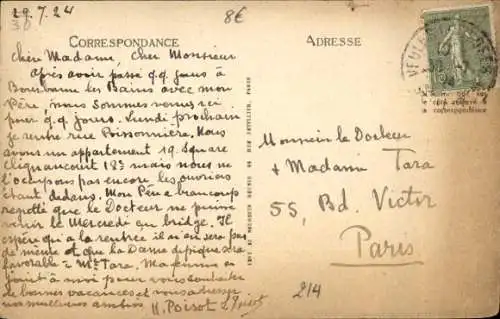 29.7.24
30
8€
CORRESPONDANCE
Chère Madame, Cher Monsieur
Après avoir passé q.q. jours à
Bourbonne les Bains avec mon
Père, nous sommes venus ici
pour q.q. jours. Lundi prochain
je rentre rue Poissonnière. Nous
avons un appartement 19 Square
Clignancourt 18e mais nous ne
l'occupons pas encore les ouvriers
étant dedans. Mon Père a beaucoup
regretté que le Docteur ne puisse
venir le Mercredi au bridge. Il
espère qu'à la rentrée il n'en sera pas
de même et que la Dame de pique sera
favorable à Mme Tara. Ma femme se
joint à moi pour vous souhaiter
de bonnes vacances et vous adresser
nos meilleures amitiés
H. Poirot
ADRESSE
Monsieur le Docteur
& Madame Tara
55, Bd. Victor
Paris
214